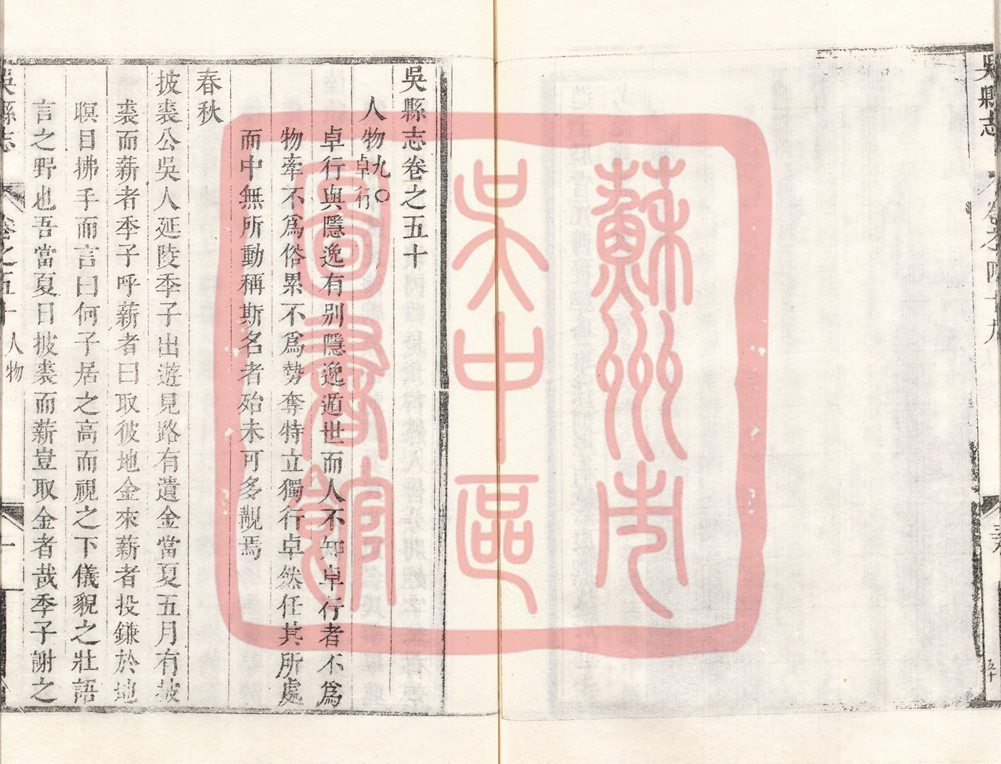 吳縣志
吳縣志卷之五十
人物九○卓行
卓行與隱逸有别隱逸遁世而人不知卓行者不爲
物牽不爲俗累不爲勢奪特立獨行卓然任其所處
而中無所動稱斯名者殆未可多覯焉
春秋
披裘公吳人延陵季子出遊見路有遺金當夏五月有披
裘而薪者季子呼薪者曰取彼地金來薪者投鎌於地
瞑目拂手而言曰何子居之高而視之下儀貌之壯語
言之野也吾當夏日披裘而薪豈取金者哉季子謝之
吳縣志
卷之五十
人物
一
蘇州市
吳中區
圖書館